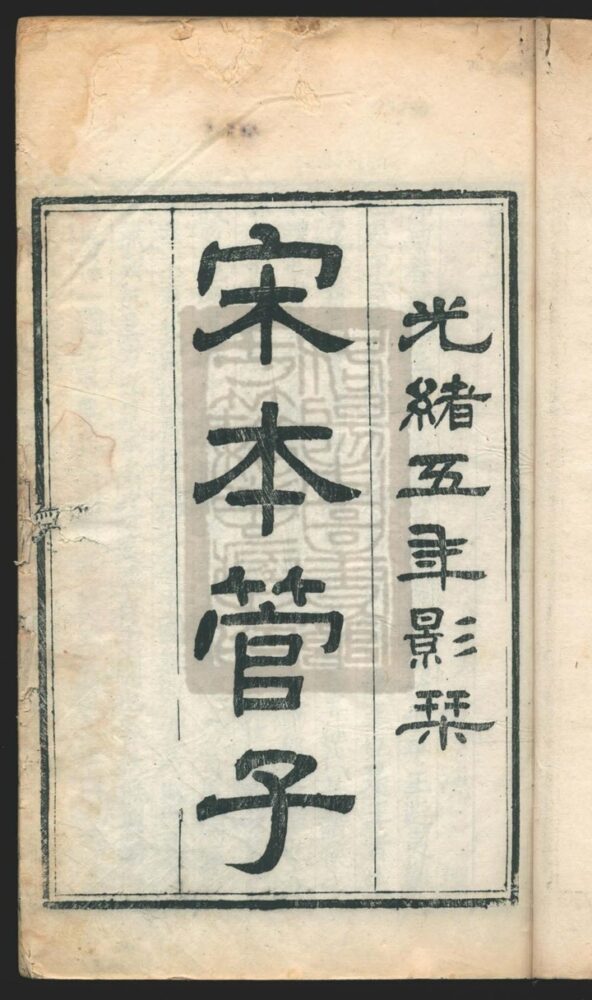 光緒五年影栞
宋本管子